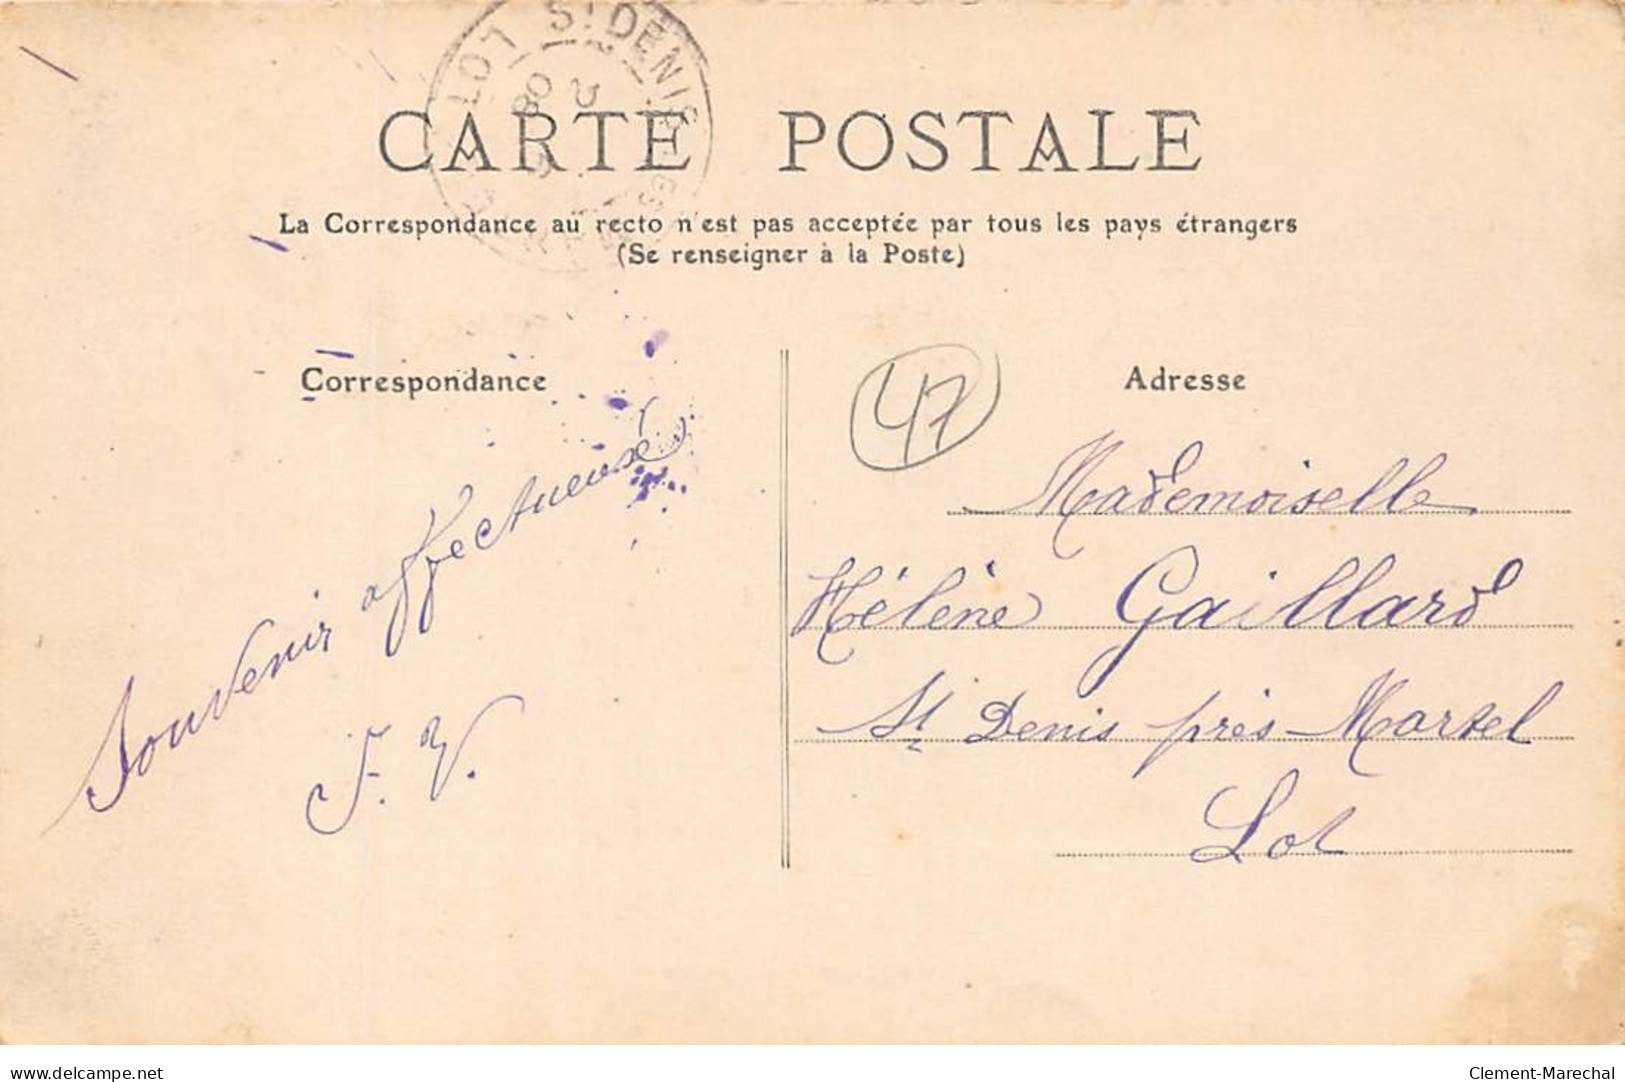 LOT ST DENIS
08
CARTE POSTALE
La Correspondance au recto n'est pas acceptée par tous les pays étrangers
(Se renseigner à la Poste)
Correspondance
Souvenir affectueuse
F. V.
47
Adresse
Mademoiselle
Hélène Gaillard
St Denis près Martel
Lot
www.delcampe.net
Clement-Marechal